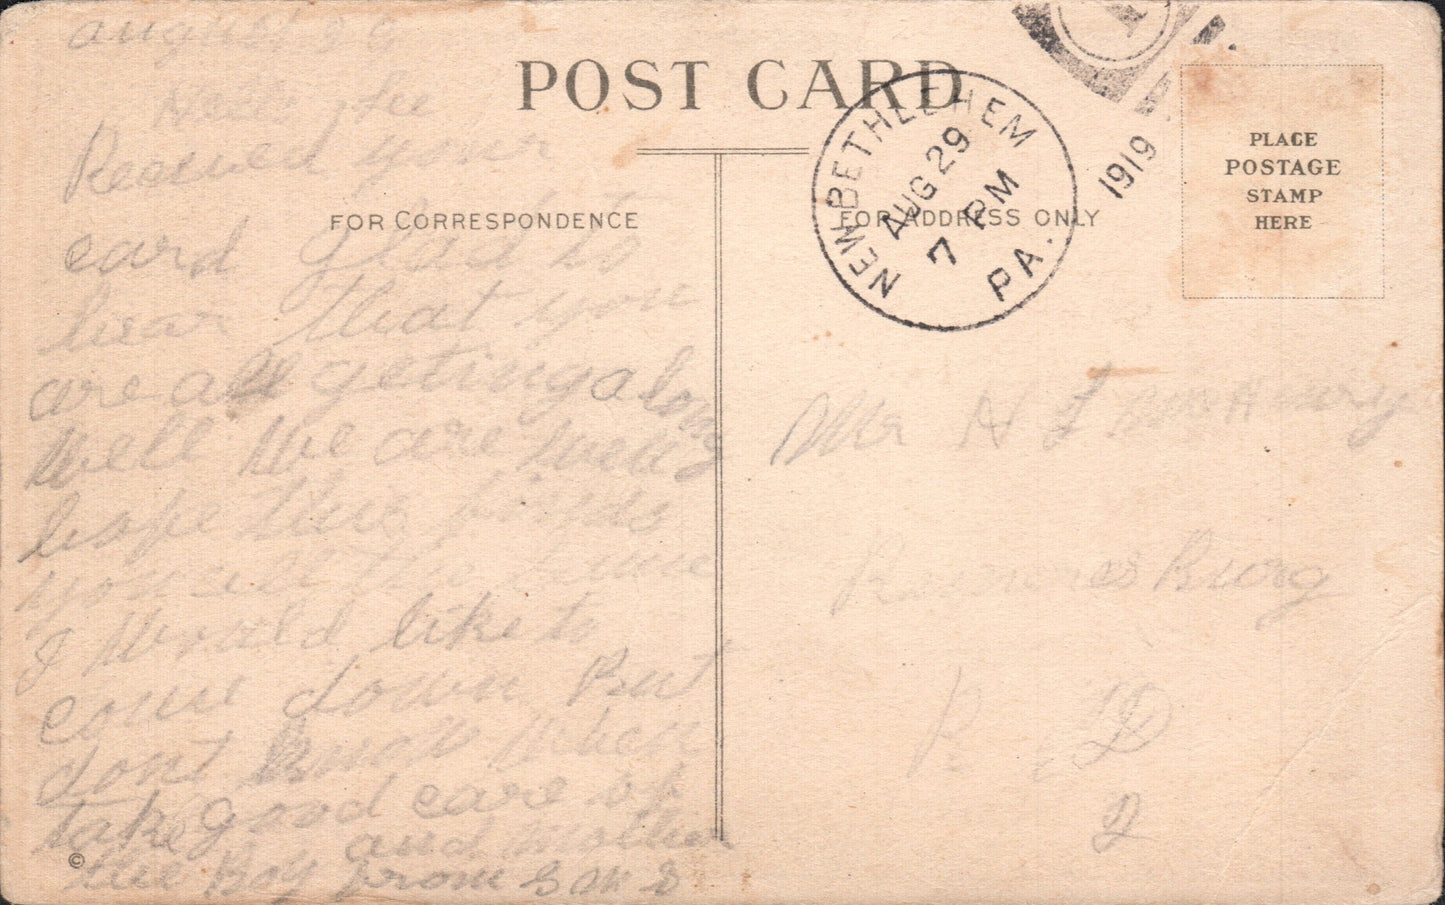 POST CARD
NEW BETHLEHEM PA.
AUG 29
7 PM
1919
PLACE
POSTAGE
STAMP
HERE
FOR CORRESPONDENCE
FOR ADDRESS ONLY
august 26
Received your
card glad to
hear that you
are all geting along
well We are well
hope this finds
you all the same
I Would like to
come down But
dont know When
take good care of
and mother
the Boy from S M S
©
Mr N
Burg
R D
2